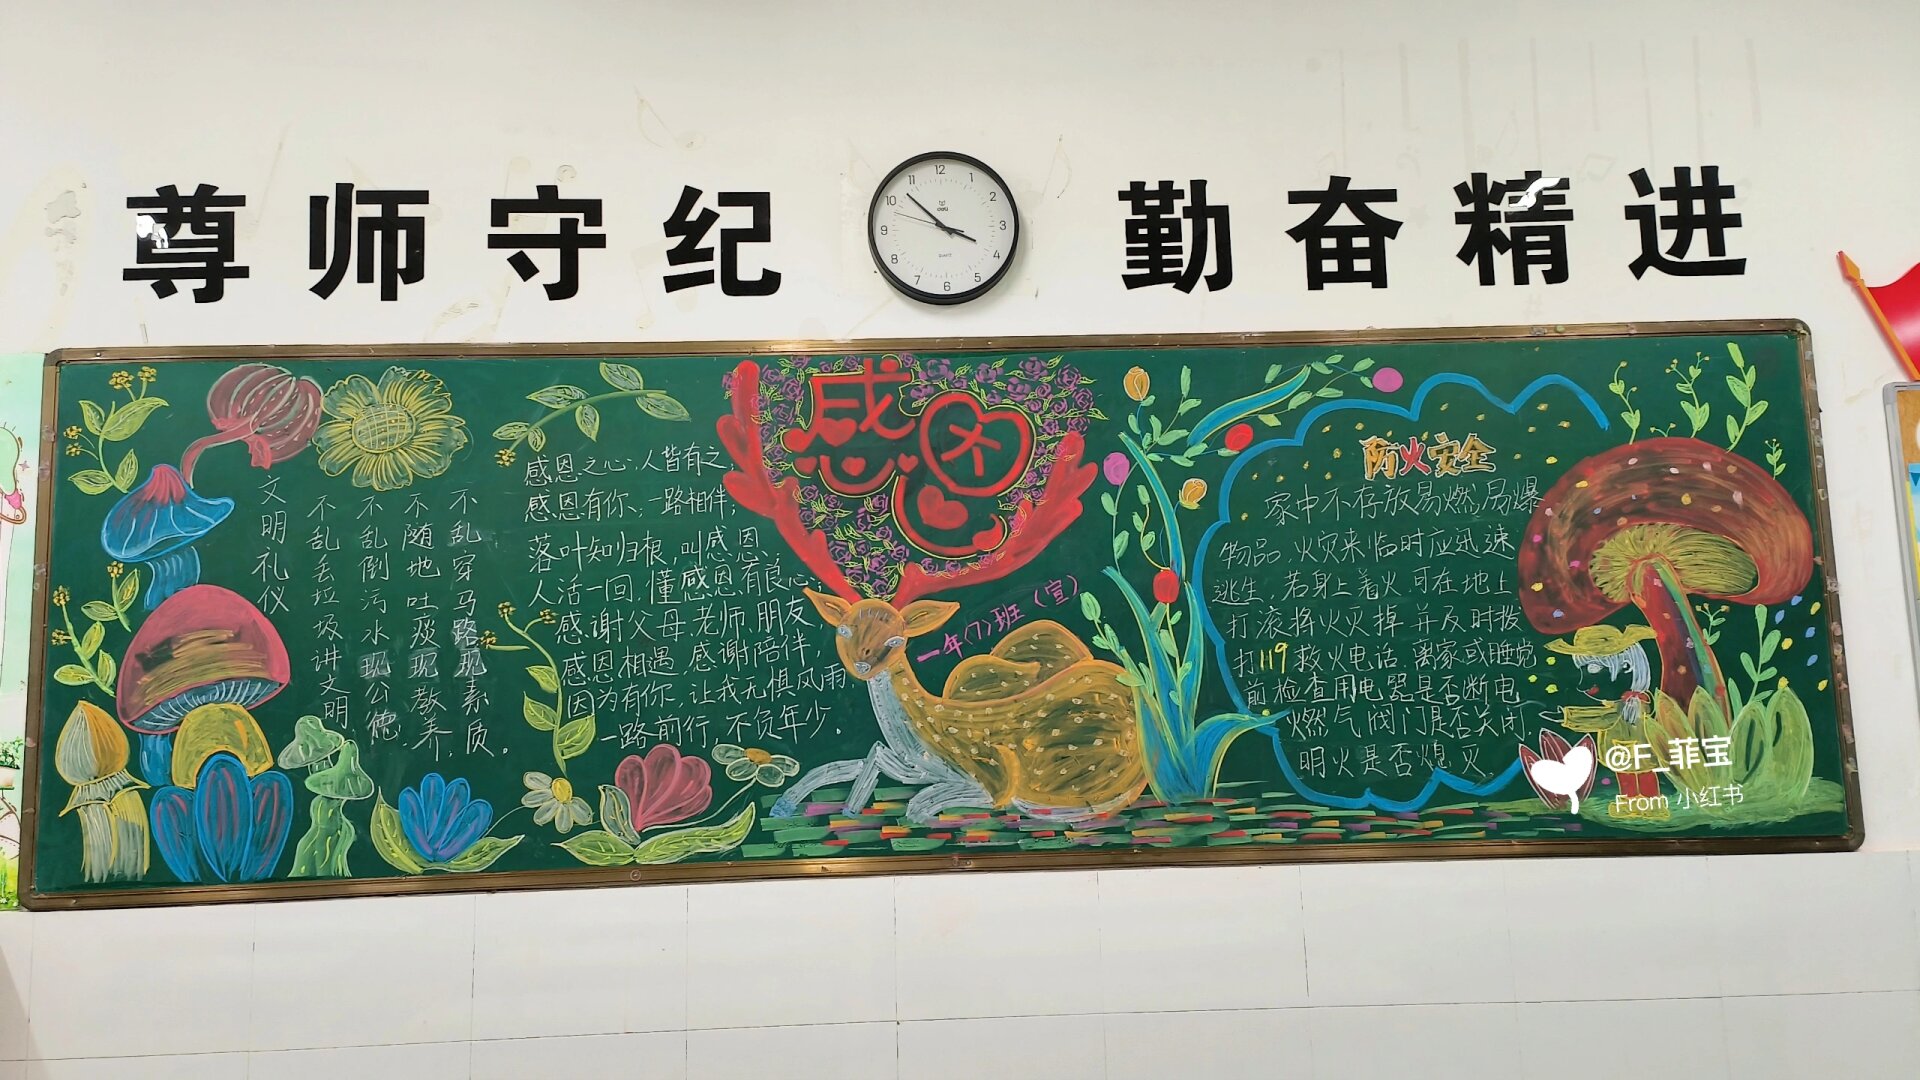 尊师守纪
勤奋精进
12
1
2
3
4
5
6
7
8
9
10
11
deli
QUARTZ
文明礼仪
不乱丢垃圾讲文明,
不乱倒污水现公德.
不随地吐痰现教养,
不乱穿马路现素质。
感恩之心,人皆有之;
感恩有你,一路相伴;
落叶知归根,叫感恩,
人活一回,懂感恩有良心;
感谢父母、老师、朋友
感恩相遇,感谢陪伴,
因为有你,让我无惧风雨,
一路前行,不负年少。
感恩
一年(7)班(宣)
防火安全
家中不存放易燃易爆
物品,火灾来临时应迅速
逃生,若身上着火,可在地上
打滚将火灭掉 并及时拨
打119救火电话.离家或睡觉
前检查用电器是否断电
燃气阀门是否关闭,
明火是否熄灭
@F_菲宝
From 小红书